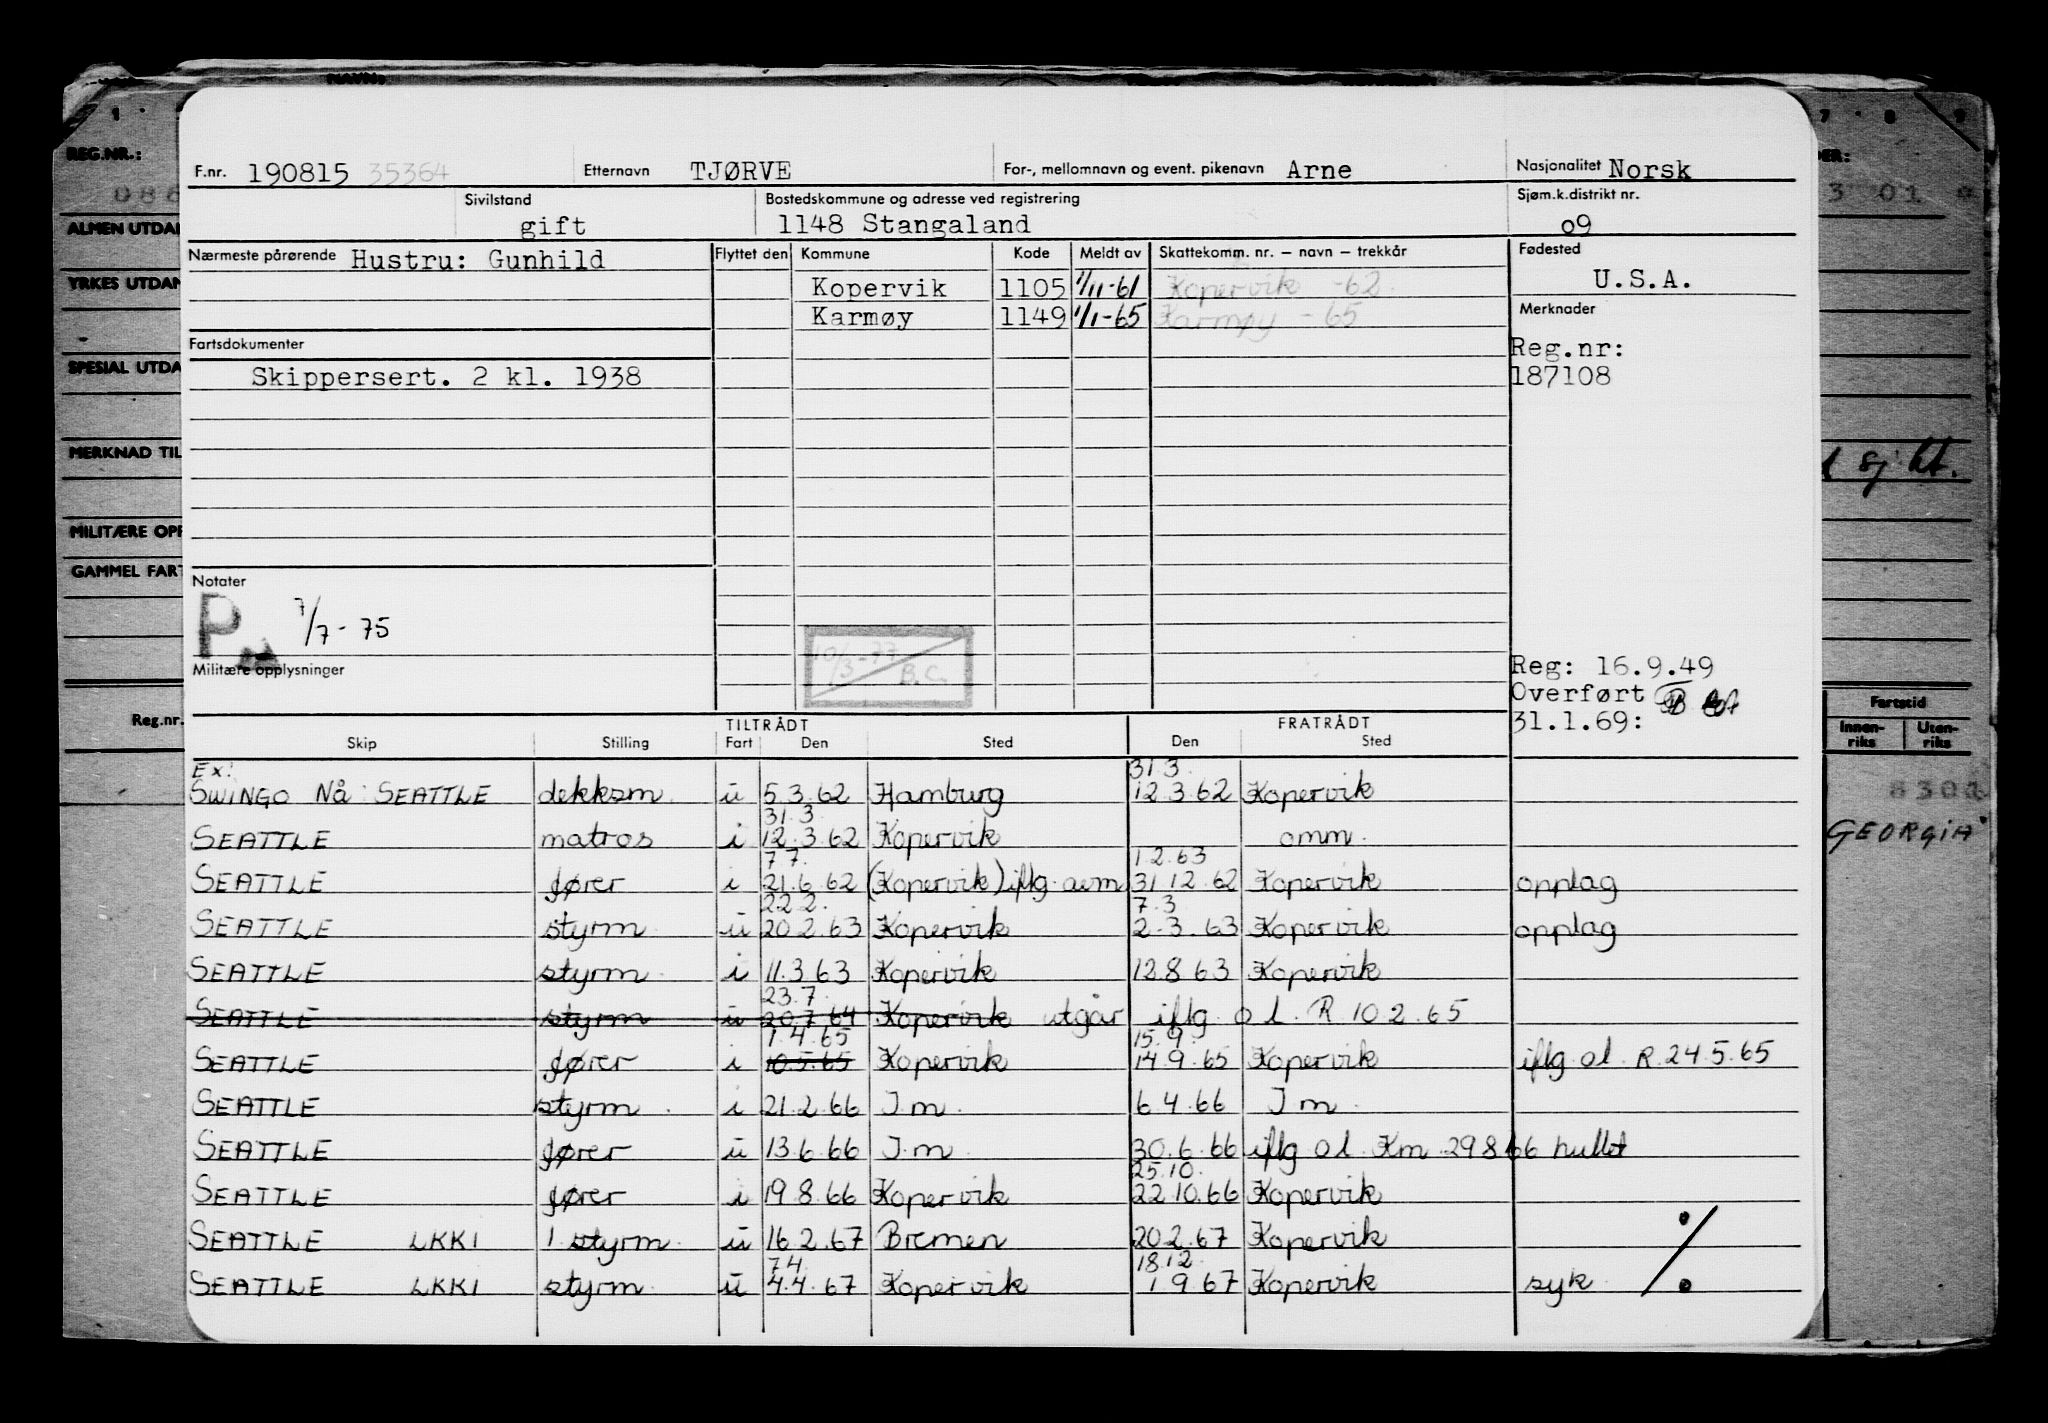 NAVN:
1
7 8 9
REG.NR.:
F.nr. 190815 35364 Etternavn TJØRVE For-, mellomnavn og event. pikenavn Arne Nasjonalitet Norsk
086
3 01
Sivilstand gift Bostedskommune og adresse ved registrering 1148 Stangaland Sjøm.k.distrikt nr. o9
ALMEN UTDAN
Nærmeste pårørende Hustru: Gunhild Flyttet den Kommune Kode Meldt av Skattekomm. nr. – navn – trekkår Fødested U.S.A.
YRKES UTDAN
Kopervik 1105 1/11-61 Kopervik -62
Karmøy 1149 1/1-65 Karmøy - 65 Merknader
Fartsdokumenter Reg.nr:
SPESIAL UTDA
Skippersert. 2 kl. 1938 187108
MERKNAD TIL
sj
MILITÆRE OPP
GAMMEL FART
Notater
P 7/7 - 75
10/3-77 B.C.
Militære opplysninger
Reg: 16.9.49
Overført
31.1.69:
Reg.nr.
Fartstid
Innen-riks Uten-riks
TILTRÅDT FRATRÅDT
Skip Stilling Fart Den Sted Den Sted
Ex: 31.3.
SWINGO Nå SEATTLE dekksm. u 5.3.62 Hamburg 12.3.62 Kopervik
8302
31.3.
SEATTLE matros i 12.3.62 Kopervik omm.
GEORGIA
7.7. 1.2.63
SEATTLE fører i 21.6.62 (Kopervik) iflg. avm 31.12.62 Kopervik opplag
22.2. 7.3
SEATTLE styrm u 20.2.63 Kopervik 2.3.63 Kopervik opplag
SEATTLE styrm. i 11.3.63 Kopervik 12.8.63 Kopervik
23.7.
SEATTLE styrm u 20.7.64 Kopervik utgår iflg. o.l. R 10.2.65
1.4.65 15.9.
SEATTLE fører i 10.5.65 Kopervik 14.9.65 Kopervik iflg. o.l. R. 24.5.65
SEATTLE styrm. i 21.2.66 I.m. 6.4.66 I.m.
SEATTLE fører u 13.6.66 I.m. 30.6.66 iflg o.l. Km 29.8.66 hullet
25.10.
SEATTLE fører i 19.8.66 Kopervik 22.10.66 Kopervik
SEATTLE LKKI 1. styrm. u 16.2.67 Bremen 20.2.67 Kopervik
7.4. 18.12
SEATTLE LKKI styrm. u 4.4.67 Kopervik 1.9.67 Kopervik syk ٪